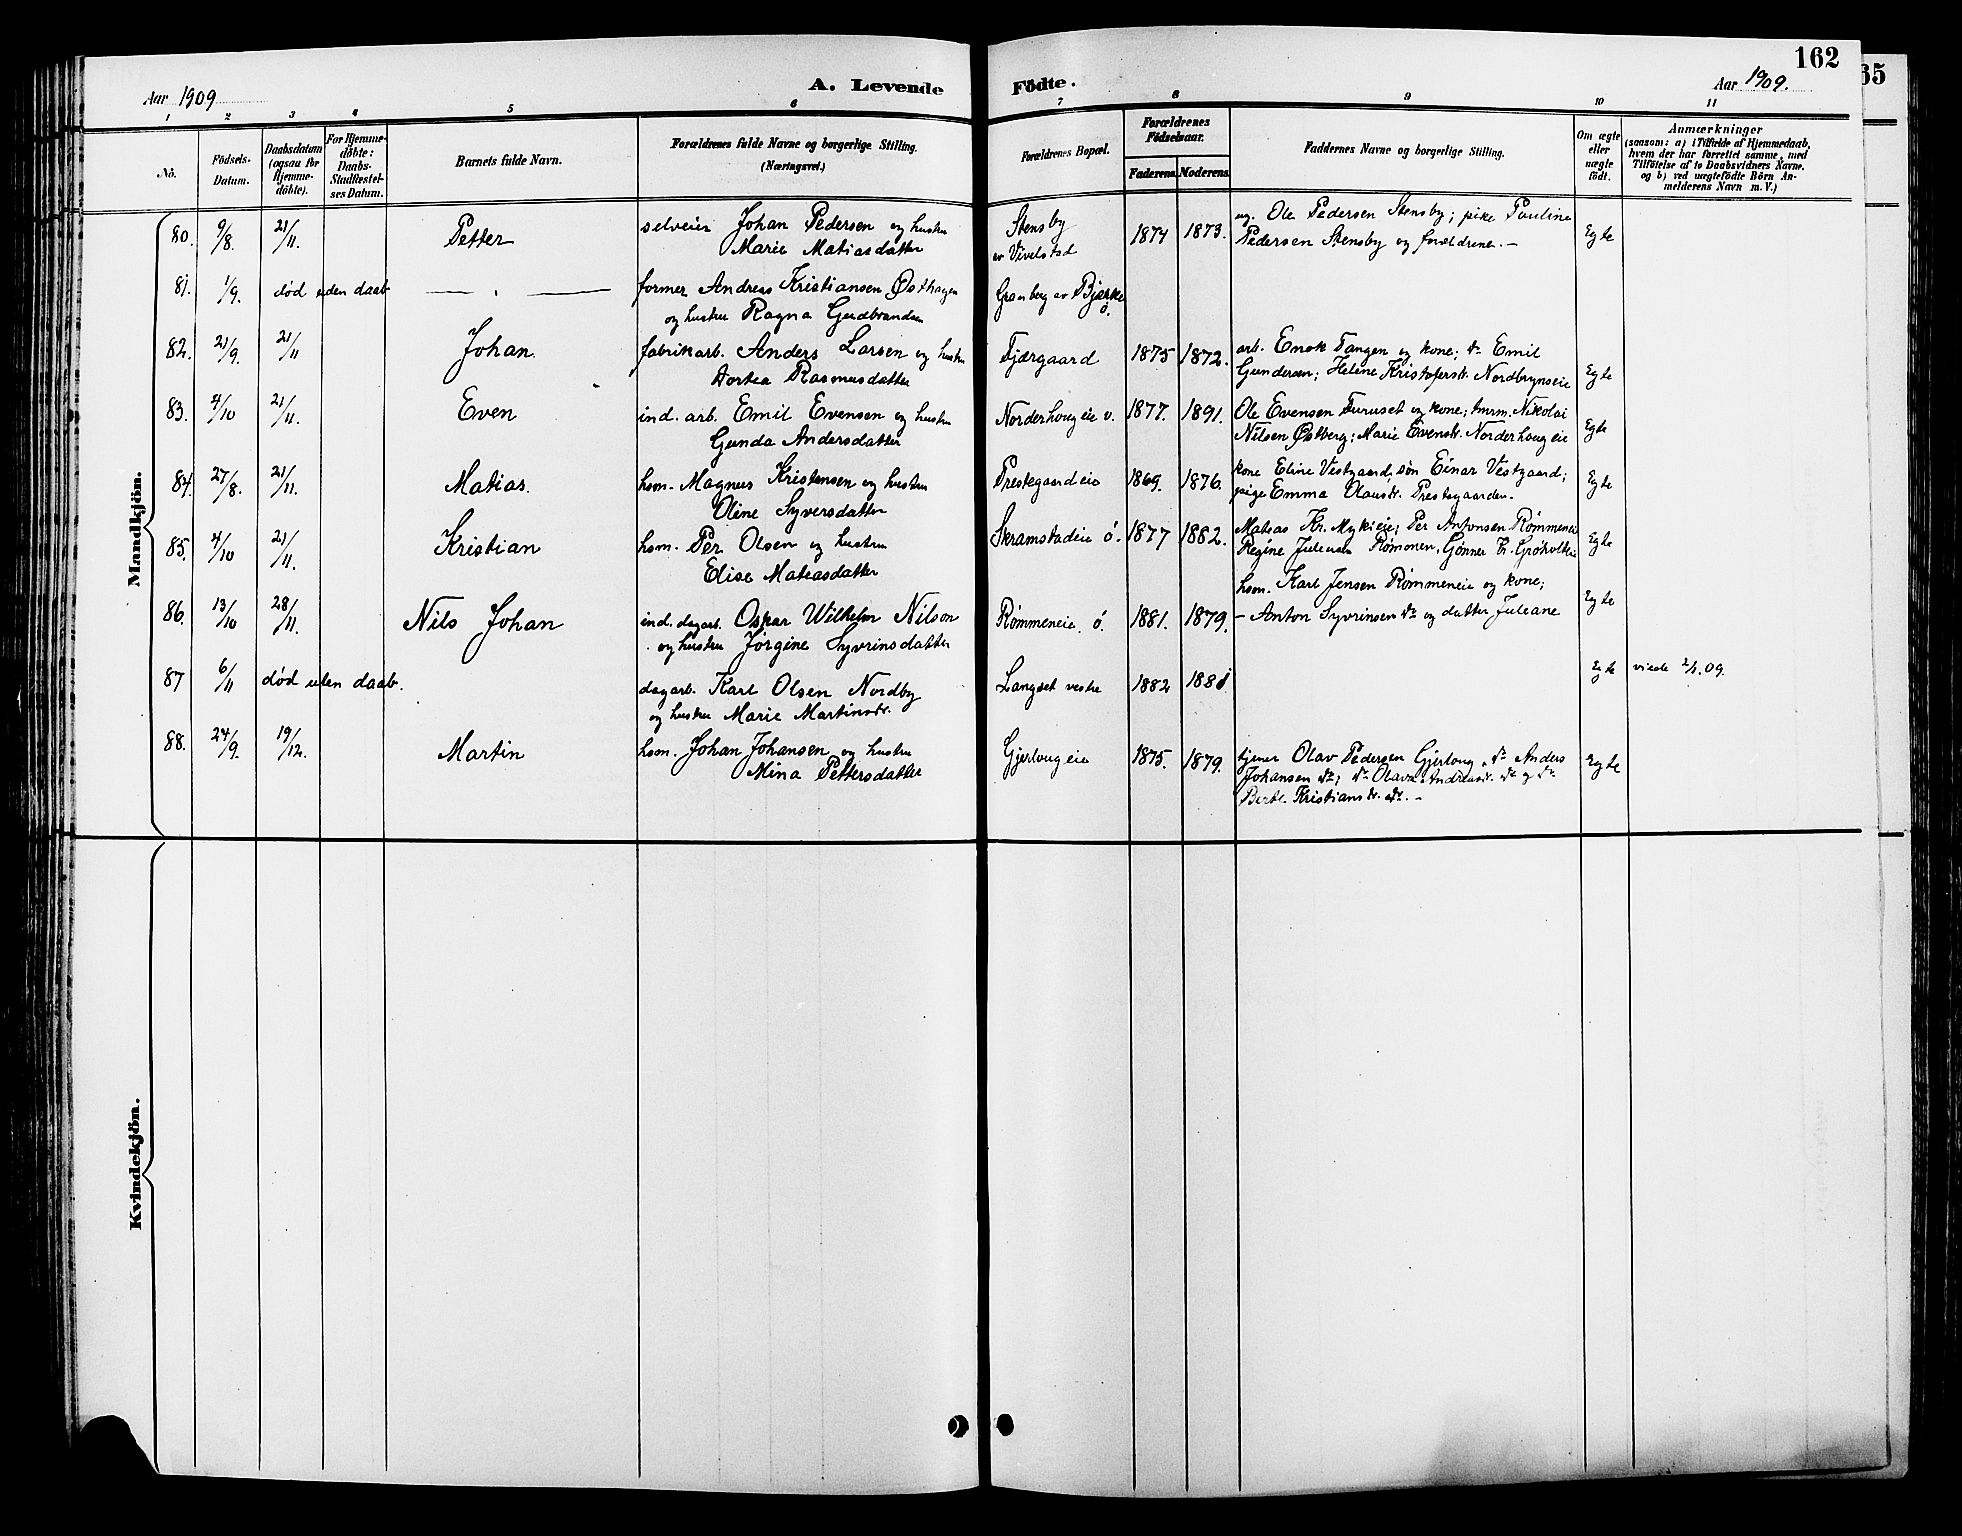 162
65
Aar 1909
A. Levende Födte.
Aar 1909.
1 2 3 4 5 6 7 8 9 10 11
No.
Födsels-Datum.
Daabsdatum (ogsaa for Hjemme-döbte).
For Hjemme-döbte: Daabs-Stadfæstel-ses Datum.
Barnets fulde Navn.
Forældrenes fulde Navne og borgerlige Stilling.
(Næringsvei.)
Forældrenes Bopæl.
Forældrenes Födselsaar.
Faderens Moderens
Faddernes Navne og borgerlige Stilling.
Om ægte eller uægte født.
Anmærkninger
(saasom: a) i Tilfælde af Hjemmedaab, hvem der har forrettet samme, med Tilföielse af to Daabsvidners Navne, og b) ved uægtefödte Börn An-melderens Navn m. V.)
Mandkjön.
80. 9/8. 21/11. Petter selveier Johan Pedersen og hustru Stensby 1874 1873. ug. Ole Pedersen Stensby; pike Pauline Egte
Marie Matiasdatter av Vivelstad Pedersen Stensby og forældrene. -
81. 1/9. død uden daab former Andreas Kristiansen Østhagen Granberg av Bjerke
og hustru Ragna Gudbrandsen ø.
82. 21/9. 21/11 Johan fabrikarb. Anders Larsen og hustru Fjærgaard 1875 1872. arb. Enok Tangen og kone; do Emil
Dortea Rasmusdatter Gundersen; Helene Kristofersdr. Nordbryneie Egte
83. 4/10 21/11. Even ind. arb. Emil Evensen og hustru Norderhougeie v. 1877. 1891. Ole Evensen Furuset og kone; tmrm. Nikolai
Gunda Andersdatter Nilsen Østberg; Marie Evensdr. Norderhougeie Egte
84. 27/8. 21/11. Matias. hsm. Magnus Kristensen og hustru Prestegaardeie 1869. 1876. kone Eline Vestgaard, søn Einar Vestgaard;
Oline Syversdatter pige Emma Olausdr. Prestegaarden. Egte
85. 4/10 21/11. Kristian hsm. Per Olsen og hustru Skramstadeie ø. 1877 1882. Matias Kr. Mykieie; Per Antonsen Rømmeneie
Elise Matiasdatter Regine Julensen Rømmen, Egte
86. 13/10 28/11. Nils Johan ind. dagarb. Oskar Wilhelm Nilson Rømmeneie. ø. 1881. 1879. hsm. Karl Jensen Rømmeneie og kone;
og hustru Jørgine Syvrinsdatter - Anton Syvrinsen do og datter Juleane Egte
87 6/11 død uden daab. dagarb. Karl Olsen Nordby Langset vestre 1882 1881 Egte viede 2/1.09.
og hustru Marie Martinsdr.
88. 24/9. 19/12. Martin hsm. Johan Johansen og hustru Gjerlougeie 1875. 1879. tjener Olav Pedersen Gjerloug, do Anders
Mina Pettersdatter Johansen do; do Olava Andreasdr. do og do Egte
Berte Kristiansdr. do. -
Kvindekjön.